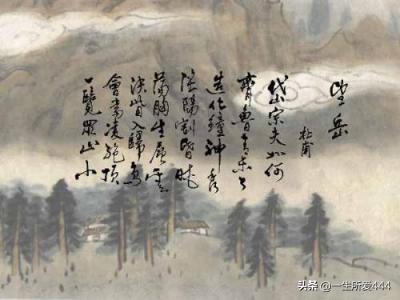 望岳
杜甫
岱宗夫如何
齊魯青未了
造化鐘神秀
陰陽割昏曉
蕩胸生層雲
決眥入歸鳥
會當凌絕頂
一覽眾山小
头条 @一生所爱444